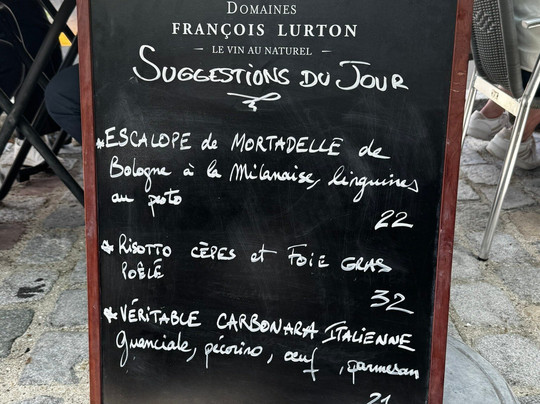 DOMAINES
FRANÇOIS LURTON
LE VIN AU NATUREL
SUGGESTIONS DU JOUR
* ESCALOPE de MORTADELLE de
Bologne à la Milanaise, linguines
au pesto
22
* RISOTTO CÈPES et FOIE GRAS
POÊLÉ
32
* VÉRITABLE CARBONARA ITALIENNE
Guanciale, pécorino, oeuf, parmesan
21